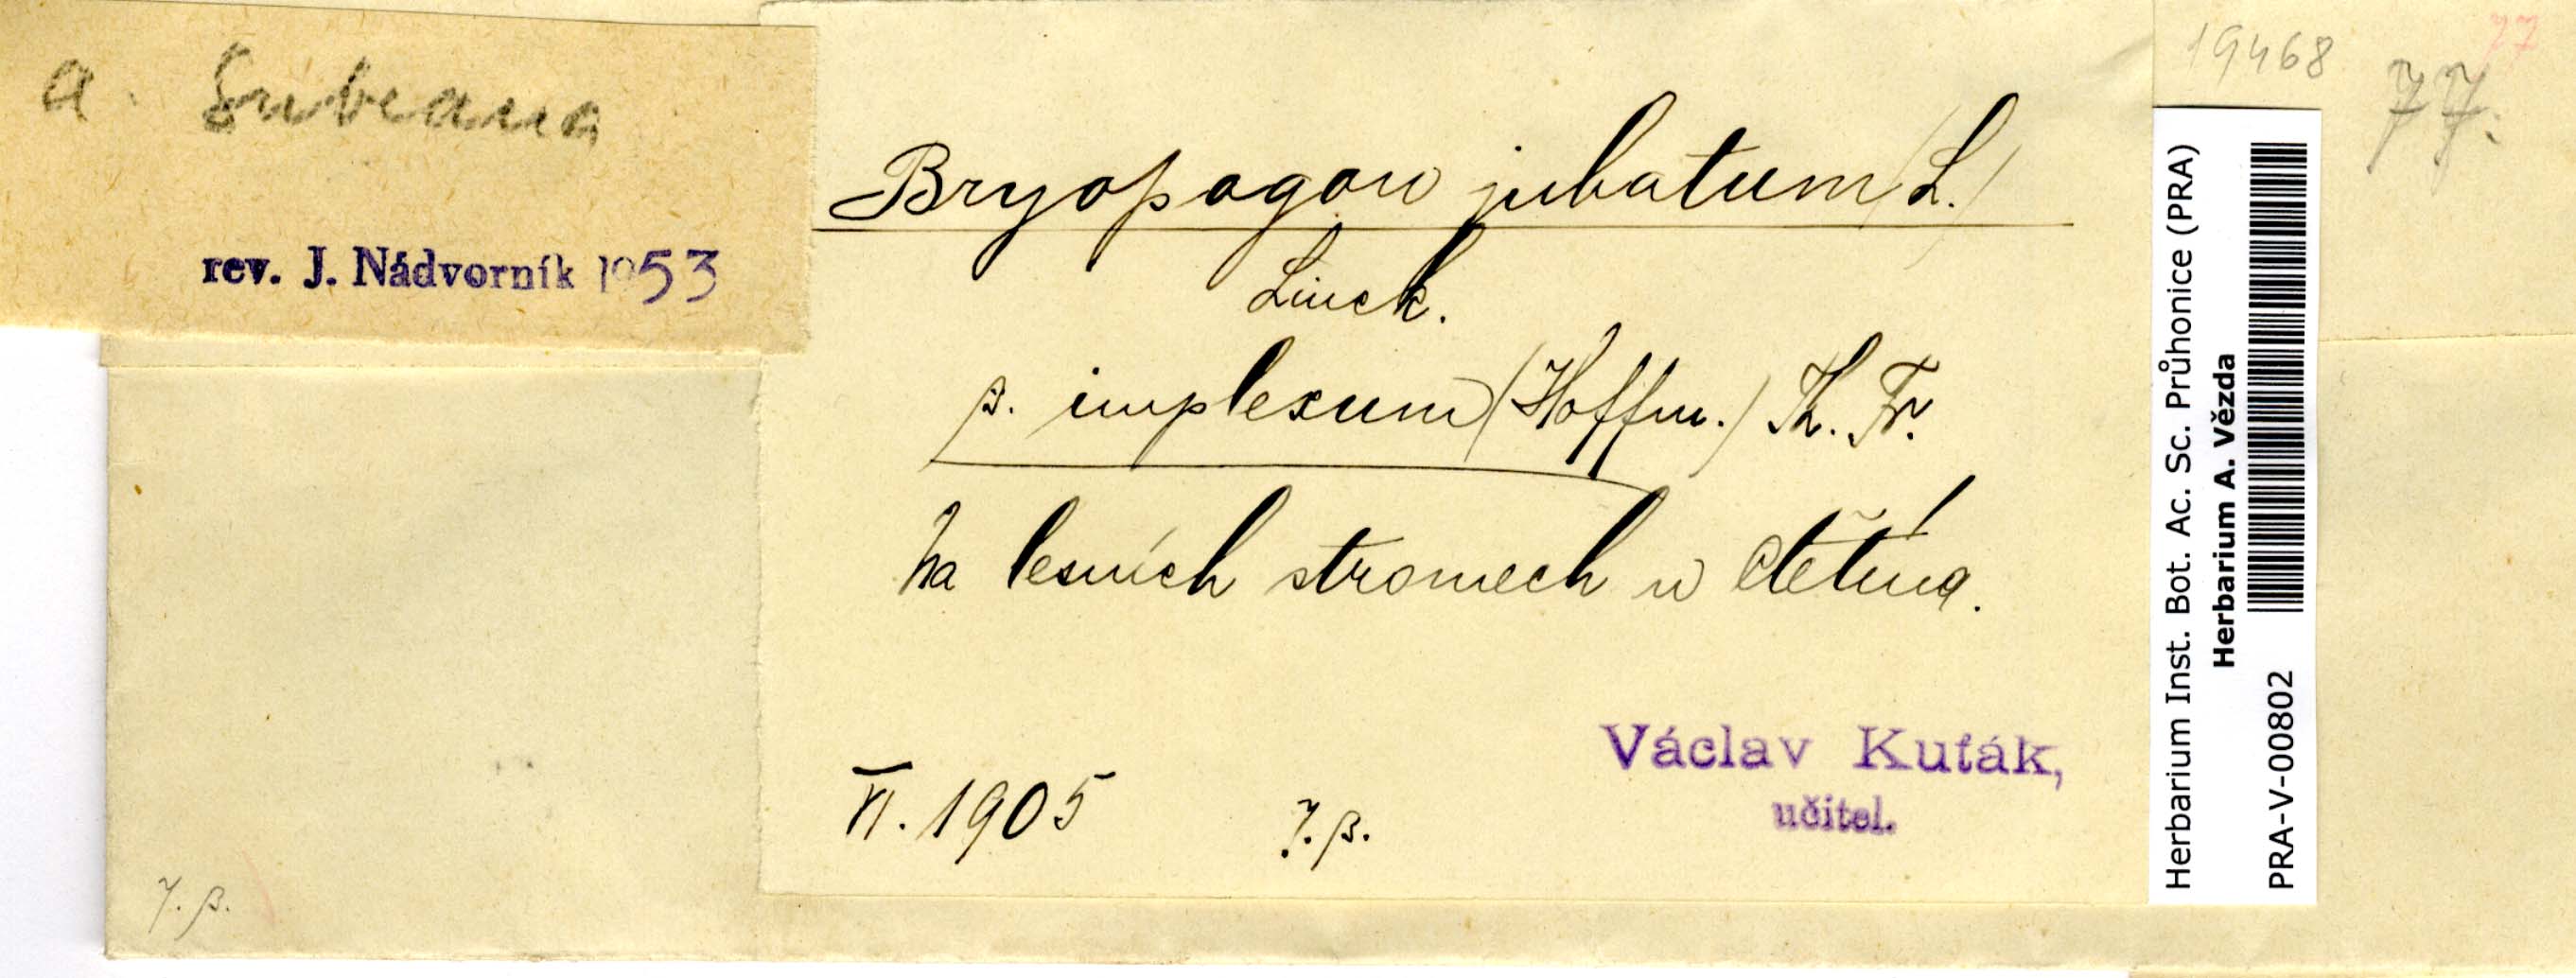 a. Subcana
rev. J. Nádvorník 1953
Bryopogon jubatum (L.)
Linck.
β. implexum (Hoffm.) Th. Fr.
Na lesních stromech u Ctětína.
VI. 1905
7. β.
Václav Kuťák,
učitel.
7. β.
19468
77
77.
Herbarium Inst. Bot. Ac. Sc. Průhonice (PRA)
Herbarium A. Vězda
PRA-V-00802